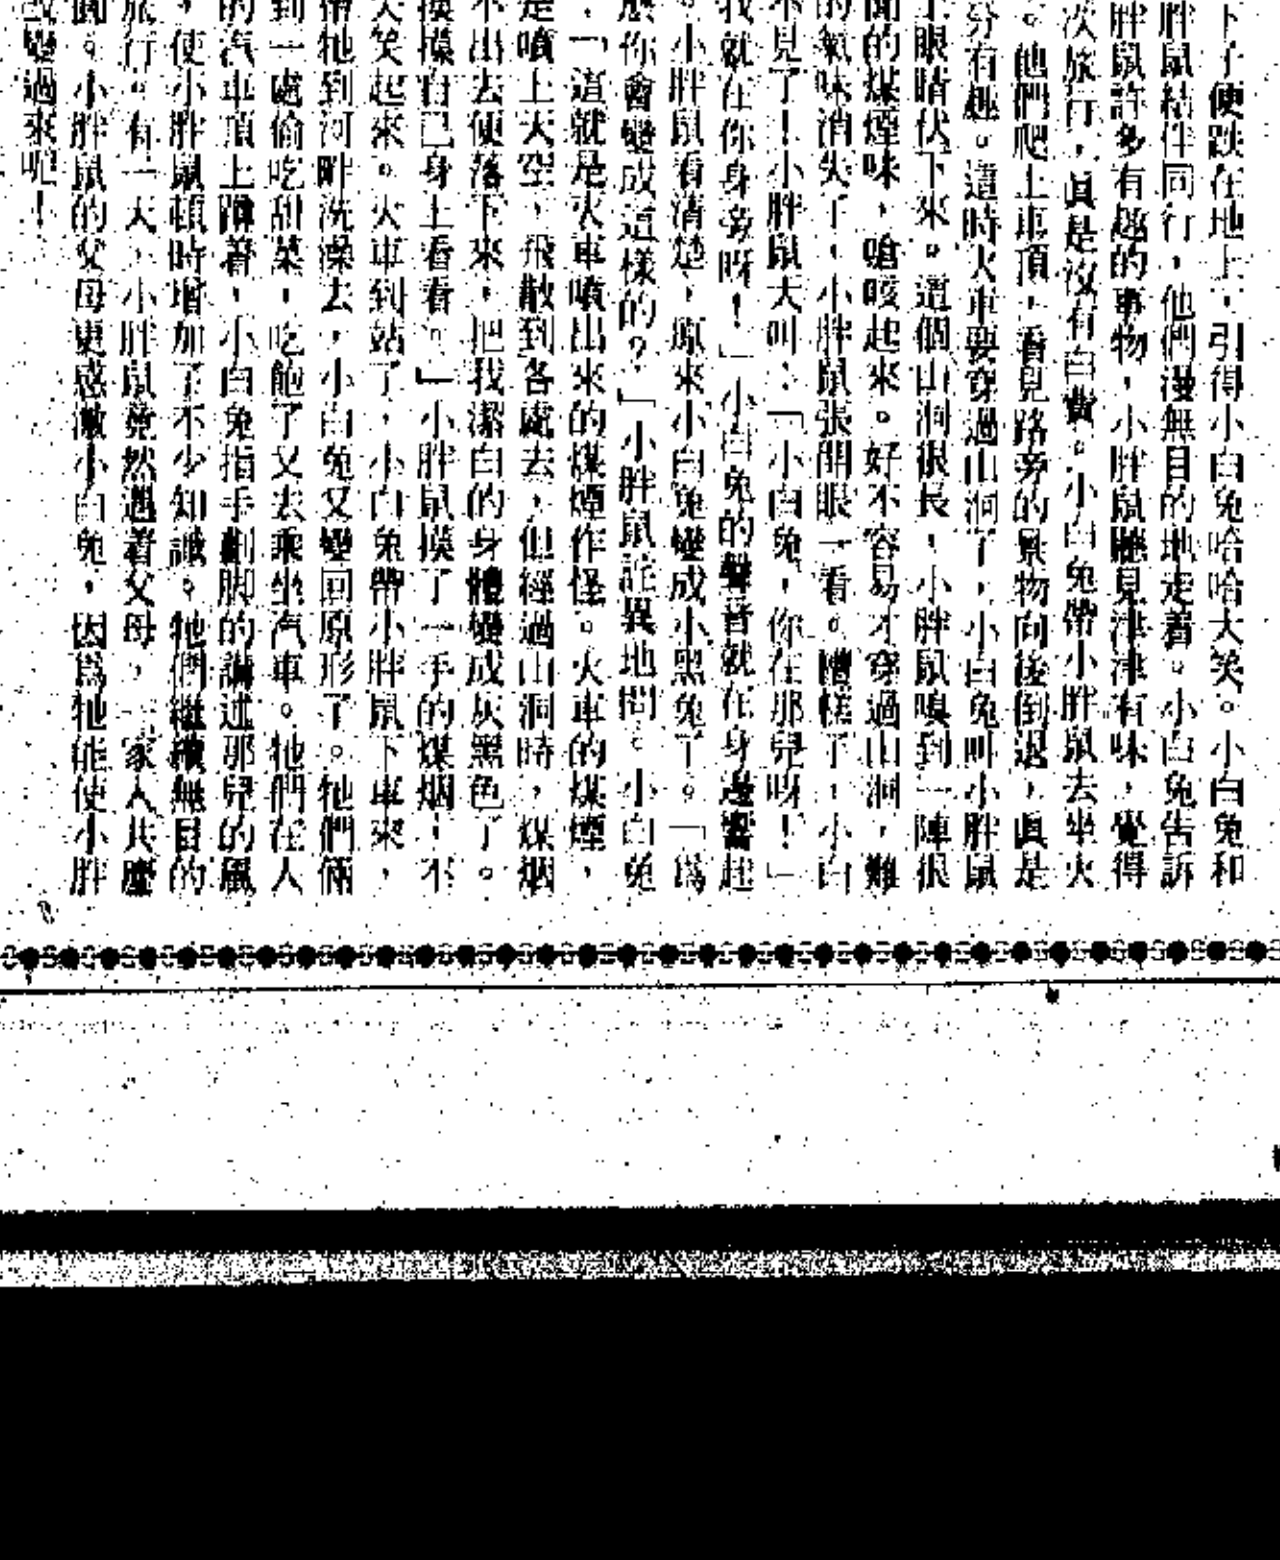 下子便跌在地上，引得小白兔哈哈大笑。小白兔和
胖鼠結伴同行，他們漫無目的地走着。小白兔告訴
胖鼠許多有趣的事物，小胖鼠聽見津津有味，覺得
次旅行，眞是沒有白費。小白兔帶小胖鼠去坐火
。他們爬上車頂，看見路旁的景物向後倒退，眞是
分有趣。這時火車要穿過山洞了，小白兔叫小胖鼠
上眼睛伏下來。這個山洞很長，小胖鼠嗅到一陣很
聞的煤煙味，嗆咳起來。好不容易才穿過山洞，難
的氣味消失了，小胖鼠張開眼一看。糟糕了，小白
不見了！小胖鼠大叫：「小白兔，你在那兒呀！」
我就在你身旁呀！」小白兔的聲音就在身邊響起
。小胖鼠看清楚，原來小白兔變成小黑兔了。「爲
麽你會變成這樣的？」小胖鼠詫異地問。小白兔
，「這就是火車噴出來的煤煙作怪。火車的煤煙，
是噴上天空，飛散到各處去，但經過山洞時，煤烟
不出去便落下來，把我潔白的身體變成灰黑色了。
摸摸自己身上看看。」小胖鼠摸了一手的煤烟，不
大笑起來。火車到站了，小白兔帶小胖鼠下車來，
帶牠到河畔洗澡去，小白兔又變回原形了。牠們倆
到一處偷吃甜菜，吃飽了又去乘坐汽車。牠們在人
的汽車頂上蹲着，小白兔指手劃脚的講述那兒的風
，使小胖鼠頓時增加了不少知識。牠們繼續無目的
旅行。有一天，小胖鼠竟然遇着父母，一家人共慶
圓。小胖鼠的父母更感激小白兔，因爲牠能使小胖
改變過來呢！